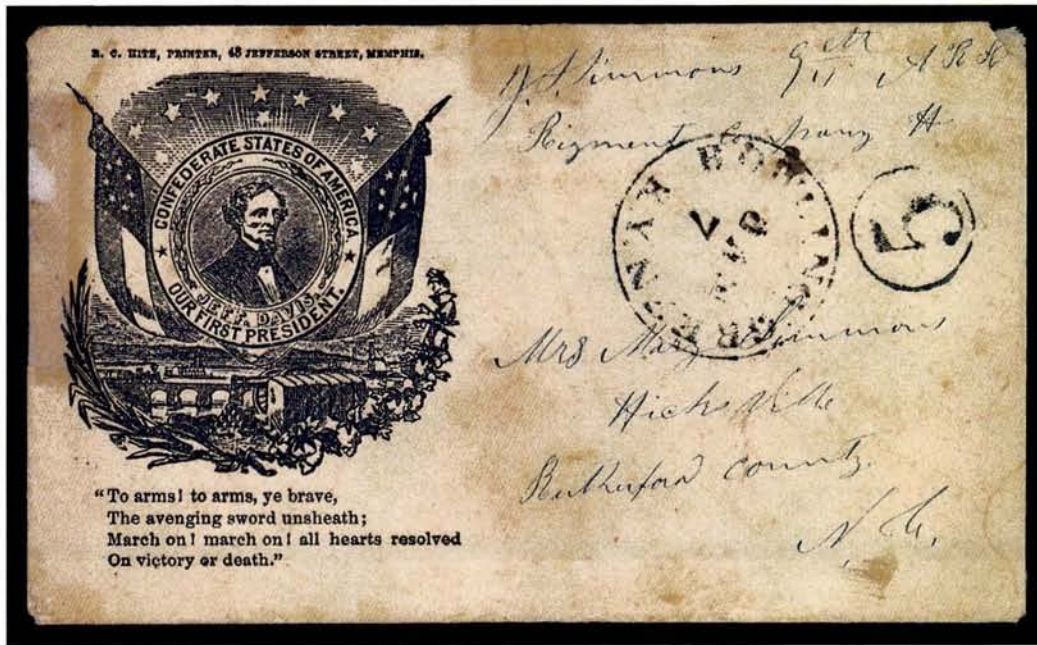 R. C. HITE, PRINTER, 48 JEFFERSON STREET, MEMPHIS.
CONFEDERATE STATES OF AMERICA
JEFF. DAVIS.
OUR FIRST PRESIDENT.
"To arms! to arms, ye brave,
The avenging sword unsheath;
March on! march on! all hearts resolved
On victory or death."
J. Simmons 9th
Rigment Company H
BOWLING
7
5
Mrs Mary Simmons
Hicksville
Rutherford County.
N. C.